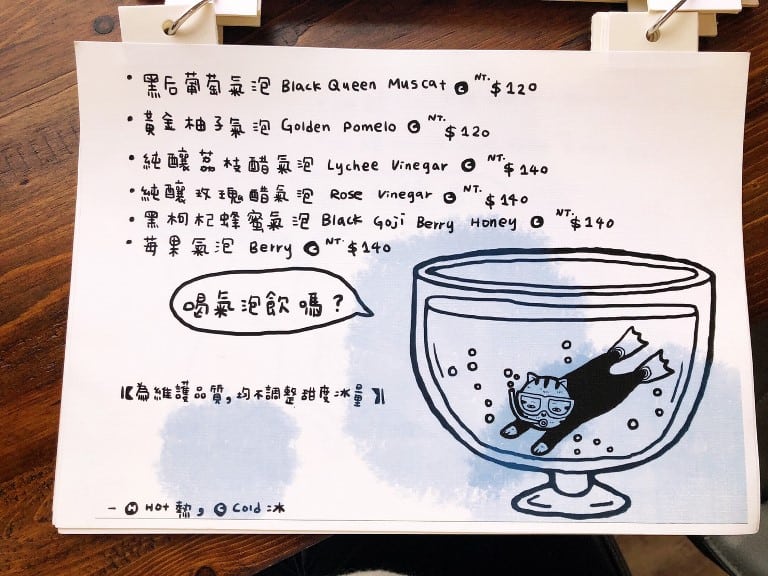 • 黑后葡萄氣泡 Black Queen Muscat C NT. $120
• 黃金柚子氣泡 Golden Pomelo C NT. $120
• 純釀荔枝醋氣泡 Lychee Vinegar C NT. $140
• 純釀玫瑰醋氣泡 Rose Vinegar C NT. $140
• 黑枸杞蜂蜜氣泡 Black Goji Berry Honey C NT. $140
• 莓果氣泡 Berry C NT. $140
喝氣泡飲嗎？
【為維護品質，均不調整甜度冰量】
- H Hot 熱，C Cold 冰